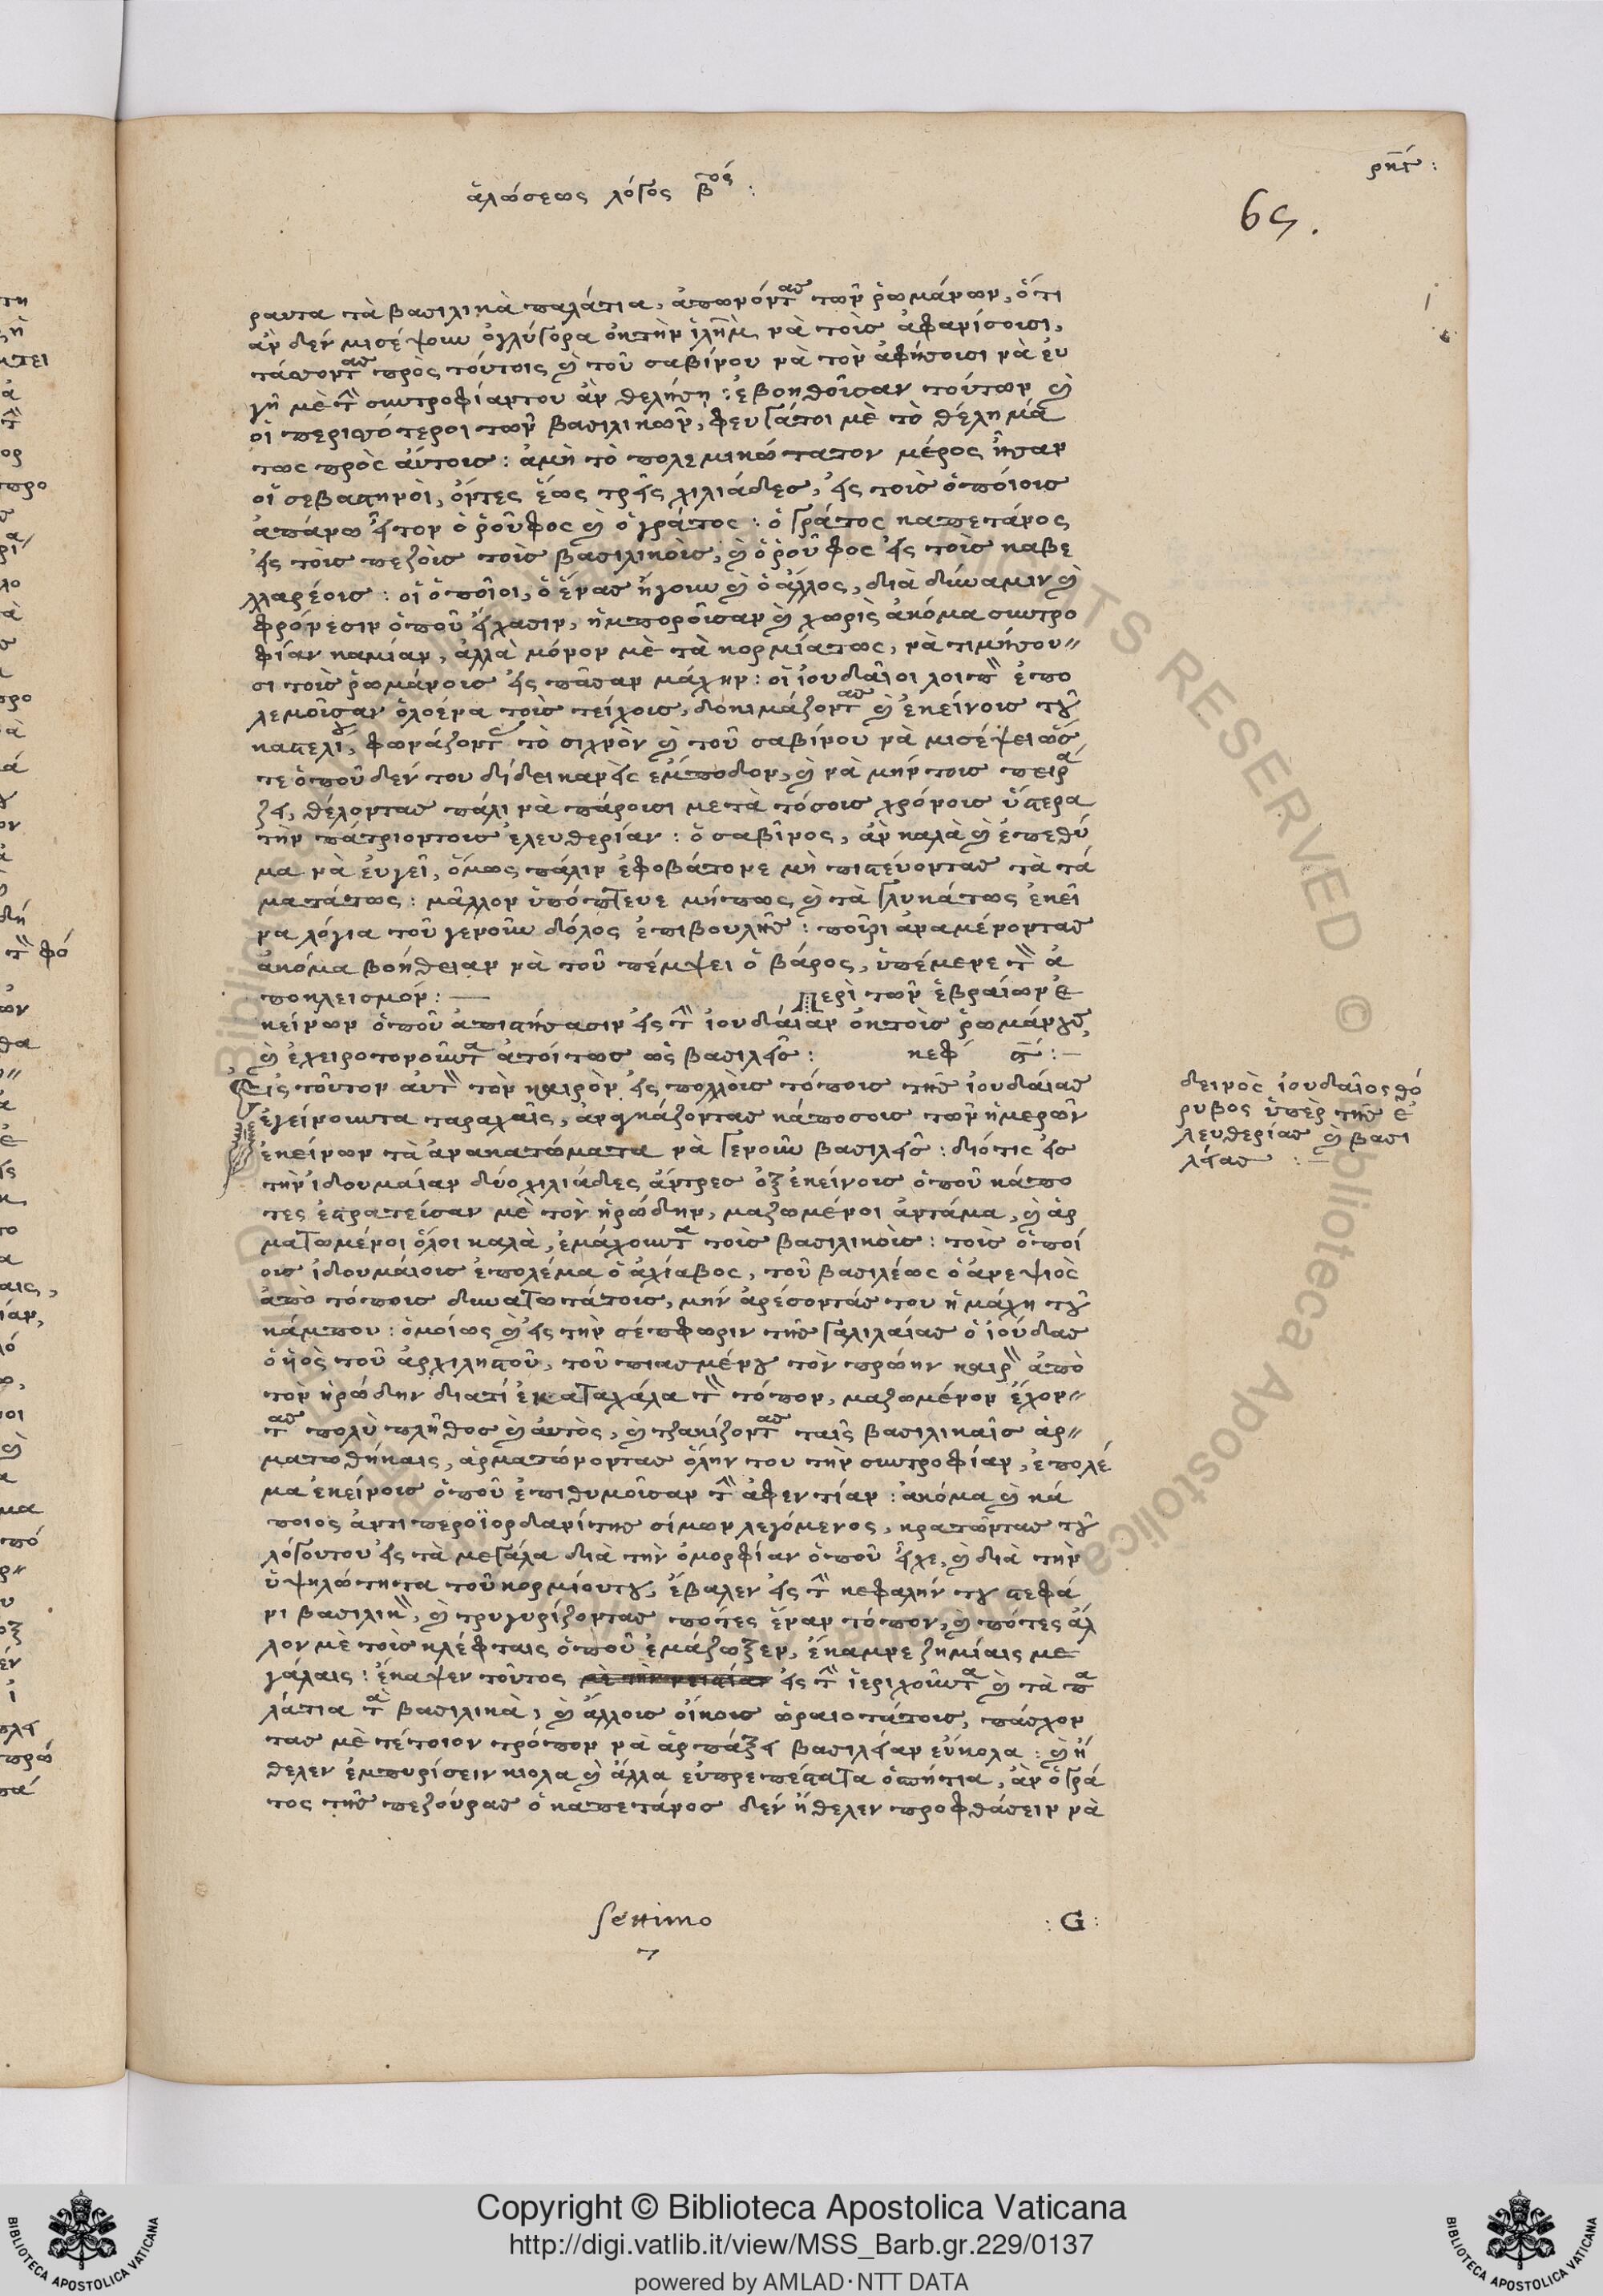 ρηγ:
ἁλώσεως λόγος βος:
65.
ραυτα τὰ βασιλικὰ παλάτια, ἀπωνόντας τῶν ῥωμάνων, ὅτι
ἂν δὲν μισέψουν ὀγλύγορα ὀκ τὴν ἱλὴμ νὰ τοὶς ἀφανίσουσι,
τάσσοντας πρὸς τούτοις ϗ τοῦ σαβίνου νὰ τὸν ἀφήσουσι νὰ ἐυ
γῆ μὲ τὴν συντροφίαντου ἂν θελήση: ἐβοηθοῦσαν τούτων ϗ
οἱ περισσότεροι τῶν βασιλικῶν, φευγάτοι μὲ τὸ θέλημά
τως πρὸς αὐτους: ἀμὴ τὸ πολεμικώτατον μέρος ἦσαν
οἱ σεβαστηνοὶ, ὄντες ἕως τρεῖς χιλιάδες, εἰς τοὶς ὁποίους
ἀπάνω ἦτον ὁ ῥοῦφος ϗ ὁ γράτος: ὁ γράτος καπετάνος
εἰς τοὶς πεζοὶς τοὶς βασιλικοὶς, ϗ ὁ ῥοῦφος εἰς τοὶς καβε
λλαρέους: οἱ ὁποῖοι, ὁ ἕνας ἤγουν ϗ ὁ ἄλλος, διὰ δύναμιν ϗ
φρόνεσιν ὁποῦ εἴχασιν, ἠμποροῦσαν ϗ χωρὶς ἀκόμα συντρο
φίαν καμίαν, ἀλλὰ μόνον μὲ τὰ κορμίατως, νὰ τιμήσου〃
σι τοὶς ῥωμάνους εἰς πᾶσαν μάχην: οἱ ἰουδαῖοι λοιπὸν ἐπο
λεμοῦσαν ὁλοένα τοὶς τείχους, δοκιμάζοντας ϗ ἐκείνους τοῦ
καστελίου, φωνάζοντες τὸ σιχνὸν ϗ τοῦ σαβίνου νὰ μισέψει ὥς
τε ὁποῦ δέν του δίδει κανεὶς ἐμπόδον, ϗ νὰ μήν τους πειρά
ζει, θέλοντας πάλι νὰ πάρουσι μετὰ τόσους χρόνους ὕστερα
τὴν πάτριοντους ἐλευθερίαν: ὁ σαβῖνος, ἂν καλὰ ϗ ἐπεθύ
μα νὰ ἐυγεῖ, ὅμως πάλιν ἐφοβάτονε μὴ πιστεύοντας τὰ τά
ματάτως: μᾶλλον ὑπόπτευε μήπως ϗ τὰ γλυκάτως ἐκεῖ
να λόγια τοῦ γενοῦν δόλος ἐπιβουλῆς: ποῦρι ἀναμένοντας
ἀκόμα βοήθειαν νὰ τοῦ πέμψει ὁ βάρος, ὑπέμενε τὸν ἀ
ποκλεισμόν: — Περὶ τῶν ἑβραίων ἐ
κείνων ὁποῦ ἀπιστήσασιν εἰς τὴν ἰουδαίαν ὀκ τοὶς ῥωμάνους
ϗ ἐχειροτονοῦντα ἀτοίτως ὡς βασιλεῖς: κεφ ϛ: —
Εἰς τοῦτον αὐτὸν τὸν καιρὸν εἰς πολλοὶς τόπους τῆς ἰουδαίας
ἐγείνουντα ταραχαῖς, ἀναγκάζοντας κάποσους τῶν ἡμερῶν
ἐκείνων τὰ ἀνακατώματα νὰ γενοῦν βασιλεῖς: διότις εἰς
τὴν ἰδουμαίαν δύο χιλιάδες ἄντρες ὀξ ἐκείνους ὁποῦ κάπο
τες ἐστρατείσαν μὲ τὸν ἡρώδην, μαζωμένοι ἀντάμα, ϗ ἁρ
ματωμένοι ὅλοι καλὰ, ἐμάχουντα τοὶς βασιλικοὶς: τοὶς ὁποί
ους ἰδουμαίους ἐπολέμα ὁ ἀχίαβος, τοῦ βασιλέως ὁ ἀνεψιὸς
ἀπὸ τόπους δυνατωτάτους, μὴν ἀρέσοντάς του ἡ μάχη τοῦ
κάμπου: ὁμοίως ϗ εἰς τὴν σέπφωριν τῆς γαλιλαίας ὁ ἰούδας
ὁ ἡὸς τοῦ ἀρχιληστοῦ, τοῦ πιασμένου τὸν πρώην καιρὸν ἀπὸ
τὸν ἡρώδην διατί ἐκαταχάλα τὸν τόπον, μαζωμένον ἔχον〃
τας πολὺ πλῆθος ϗ αὐτὸς, ϗ τζακίζοντας ταῖς βασιλικαῖς ἁρ〃
ματωθήκαις, ἁρματώνοντας ὅλην του τὴν συντροφίαν, ἐπολέ
μα ἐκείνους ὁποῦ ἐπιθυμοῦσαν τὴν ἀφεντίαν: ἀκόμα ϗ κά
ποιος ἀντιπεροϊορδανίτης σίμων λεγόμενος, κρατῶντας τοῦ
λόγουτου εἰς τὰ μεγάλα διὰ τὴν ὀμορφίαν ὁποῦ εἶχε, ϗ διὰ τὴν
ὑψηλώτητα τοῦ κορμίουτου, ἔβαλεν εἰς τὴν κεφαλήν του στεφά
νι βασιλικὸν, ϗ τρυγυρίζοντας πότες ἕναν τόπον, ϗ πότες ἄλ
λον μὲ τοὶς κλέφταις ὁποῦ ἐμάζωξεν, ἔκαμνε ζημίαις με
γάλαις: ἔκαψεν τοῦτος εἰς τὴν ἱεριχοῦντα ϗ τὰ πα
λάτια τὰ βασιλικὰ, ϗ ἄλλους οἴκους ὡραιοτάτους, πάσχον
τας μὲ τέτοιον τρόπον νὰ ἁρπάξει βασιλείαν εὔκολα: ϗ ἤ
θελεν ἐμπυρίσειν κιολα ϗ ἄλλα εὐπρεπέστατα ὁσπήτια, ἂν ὁ γρά
τος τῆς πεζούρας ὁ καπετάνος δὲν ἤθελεν προφθάσειν νὰ
δεινὸς ἰουδαῖος θό
ρυβος ὑπὲρ τῆς ἐ
λευθερίας ϗ βασι
λείας : —
settimo
7
: G :
Copyright © Biblioteca Apostolica Vaticana
http://digi.vatlib.it/view/MSS_Barb.gr.229/0137
powered by AMLAD·NTT DATA